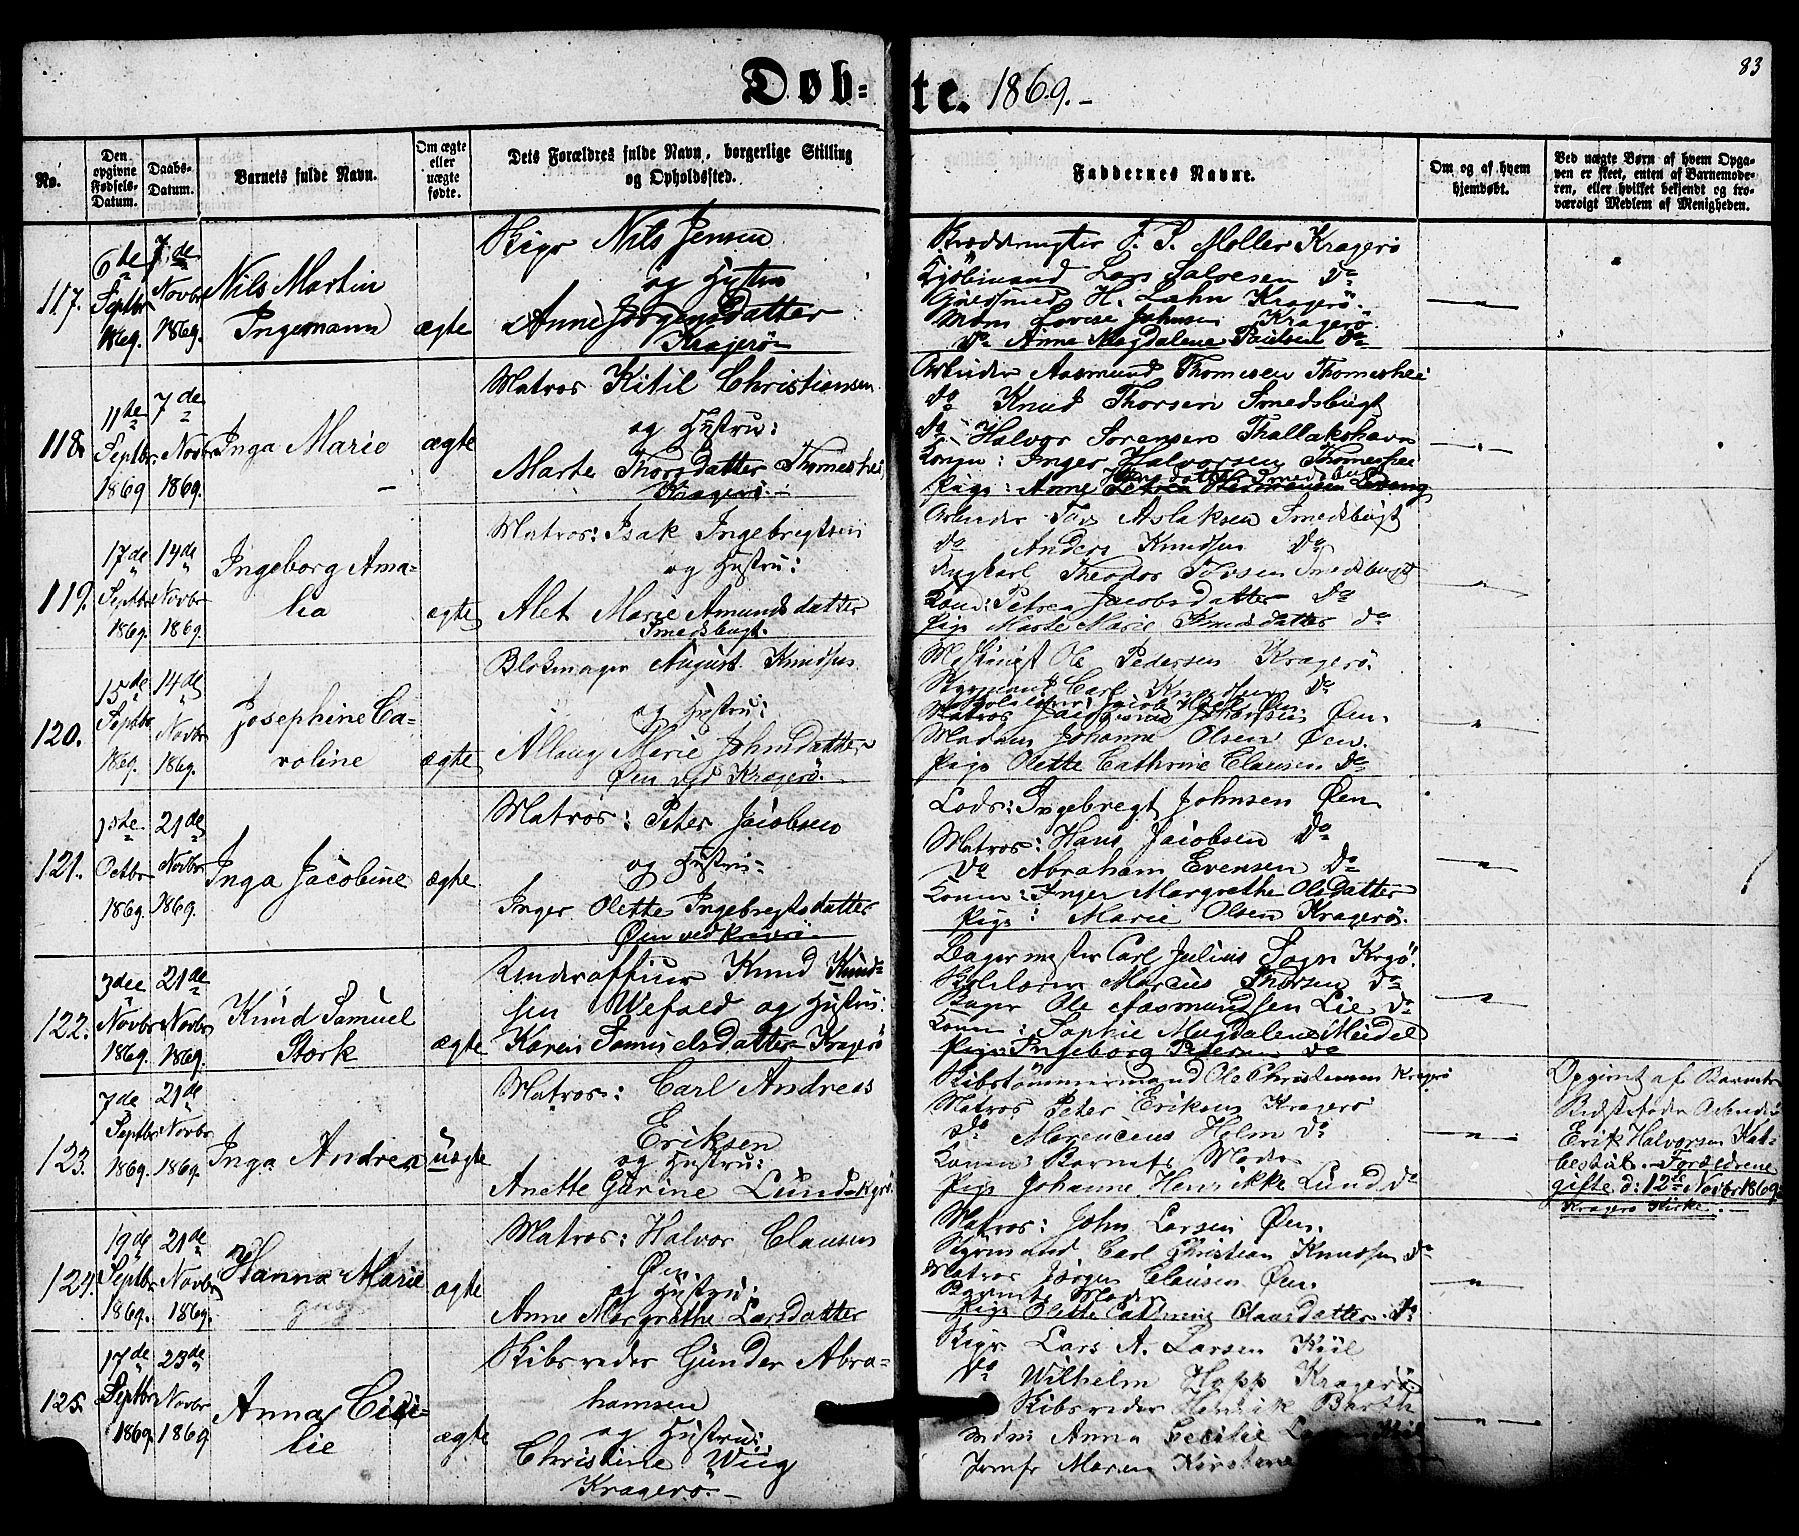 Døbte. 1869.-
83
No.
Den opgivne Fødsels-Datum.
Daabs-Datum.
Barnets fulde Navn.
Om ægte eller uægte fødte.
Dets Forældres fulde Navn, borgerlige Stilling og Opholdssted.
Faddernes Navne.
Om og af hvem hjemdøbt.
Ved uægte Børn af hvem Opga-
ven er skeet, enten af Barnemode-
ren, eller hvilket bekjendt og tro-
værdigt Medlem af Menigheden.
117.
6te Septbr 1869.
7de Novbr 1869.
Nils Martin
Ingemann
ægte
Nils Jensen
og Hustru
Anne Jørgensdatter
Kragerö
F. P. Møller Kragerö
Lars Salvesen Do
Guldsmed H. Lahn Kragerö.
Mdm Lovise Johnsen Kragerö
Do Anne Magdalene Paulsen Do
118.
11te Septbr. 1869
7de Novbr 1869.
Inga Marie
ægte
Matros Kitil Christiansen
og Hustru:
Marte Thorsdatter Thomeshei
Kragerö.
Arbeider Aasmund Thomesen Thomeshei
Do Knud Thorsen Smedsbugt
Do Halvor Sørensen Thallakshavn
Konen: Inger Halvorsen Thomeshei
Pige: Anne
119.
17de Septbr 1869.
14de Novbr 1869.
Ingeborg Ama-
lia
ægte
Matros: Isak Ingebregtsen
og Hustru:
Alet Marie Amundsdatter
Smedsbugt.
Arbeider Tov Aslaksen Smedsbugt
Do Anders Knudsen Do
Ungkarl Theodor Smedsbugt
Kone: Petrea Jacobsdatter Do
Pige Marte Marie Knudsdatter Do
120.
15de Septbr 1869.
14de Novbr 1869.
Josephine Ca-
roline
ægte
Blokmager August Knudsen
og Hustru:
Marie Johnsdatter
Øen ved Kragerö
Ole Pedersen Kragerö.
Styrmand Carl Knudsen Do
Matros Johansen Øen.
Madam Johanne Olsen Øen.
Pige Olette Cathrine Clausen Do
121.
1ste Octbr 1869.
21de Novbr 1869.
Inga Jacobine
ægte
Matros: Peter Jacobsen
og Hustru:
Inger Olette Ingebregtsdatter
Øen ved Kragerö
Lods: Ingebregt Johnsen Øen
Matros: Hans Jacobsen Do
Do Abraham Evensen Do
Konen: Inger Margrethe Olsdatter
Pige: Marie Olsen Kragerö.
122.
3die Novbr 1869.
21de Novbr 1869.
Knud Samuel
Stork
ægte
Underofficer Knud Knud-
sen Wefald og Hustru:
Karen Samuelsdatter Kragerö
Bagermester Carl Julius Krgö.
Skolelærer Marcus Thorsen Do
Bager Ole Aasmundsen Lie Do
Konen: Sophie Magdalene Meidel
Pige Ingeborg Pedersen Do
123.
7de Septbr 1869.
21de Novbr 1869.
Inga Andrea
uægte
Matros: Carl Andreas
Eriksen
og Hustru:
Anette Gurine Lund Krgö
Skibstömmermand Ole Christensen Kragerö
Matros Peter Eriksen Kragerö
Do Holm Do
Konen: Barnets Moder
Pige Johanne Henrikke Lund Do
Opgivet af Barnets
Bedstefader Arbeider
Erik Halvorsen Kat-
Forældrene
gifte d: 12te Novbr 1869
Kragerö Kirke.
124.
19de Septbr 1869.
21de Novbr 1869.
Hanna Marie
ægte
Matros: Halvor Clausen
Øen.
og Hustru:
Anne Margrethe Larsdatter
Matros: John Larsen Øen.
Styrmand Carl Christian Knudsen Do
Matros Jørgen Clausen Øen.
Barnets Moder
Pige Olette Cathrine Clausdatter Do
125.
17de Septbr 1869.
23de Novbr 1869
Anna Cici-
lie
ægte
Skibsreder Gunder Abra-
hamsen
og Hustru:
Christine Wiig
Kragerö.-
Lars A. Larsen Kiil
Do Wilhelm Hopp Kragerö
Skibsreder Henrik Barth
Mdm: Anna Cecilie
Jomfr Maren Kirstine